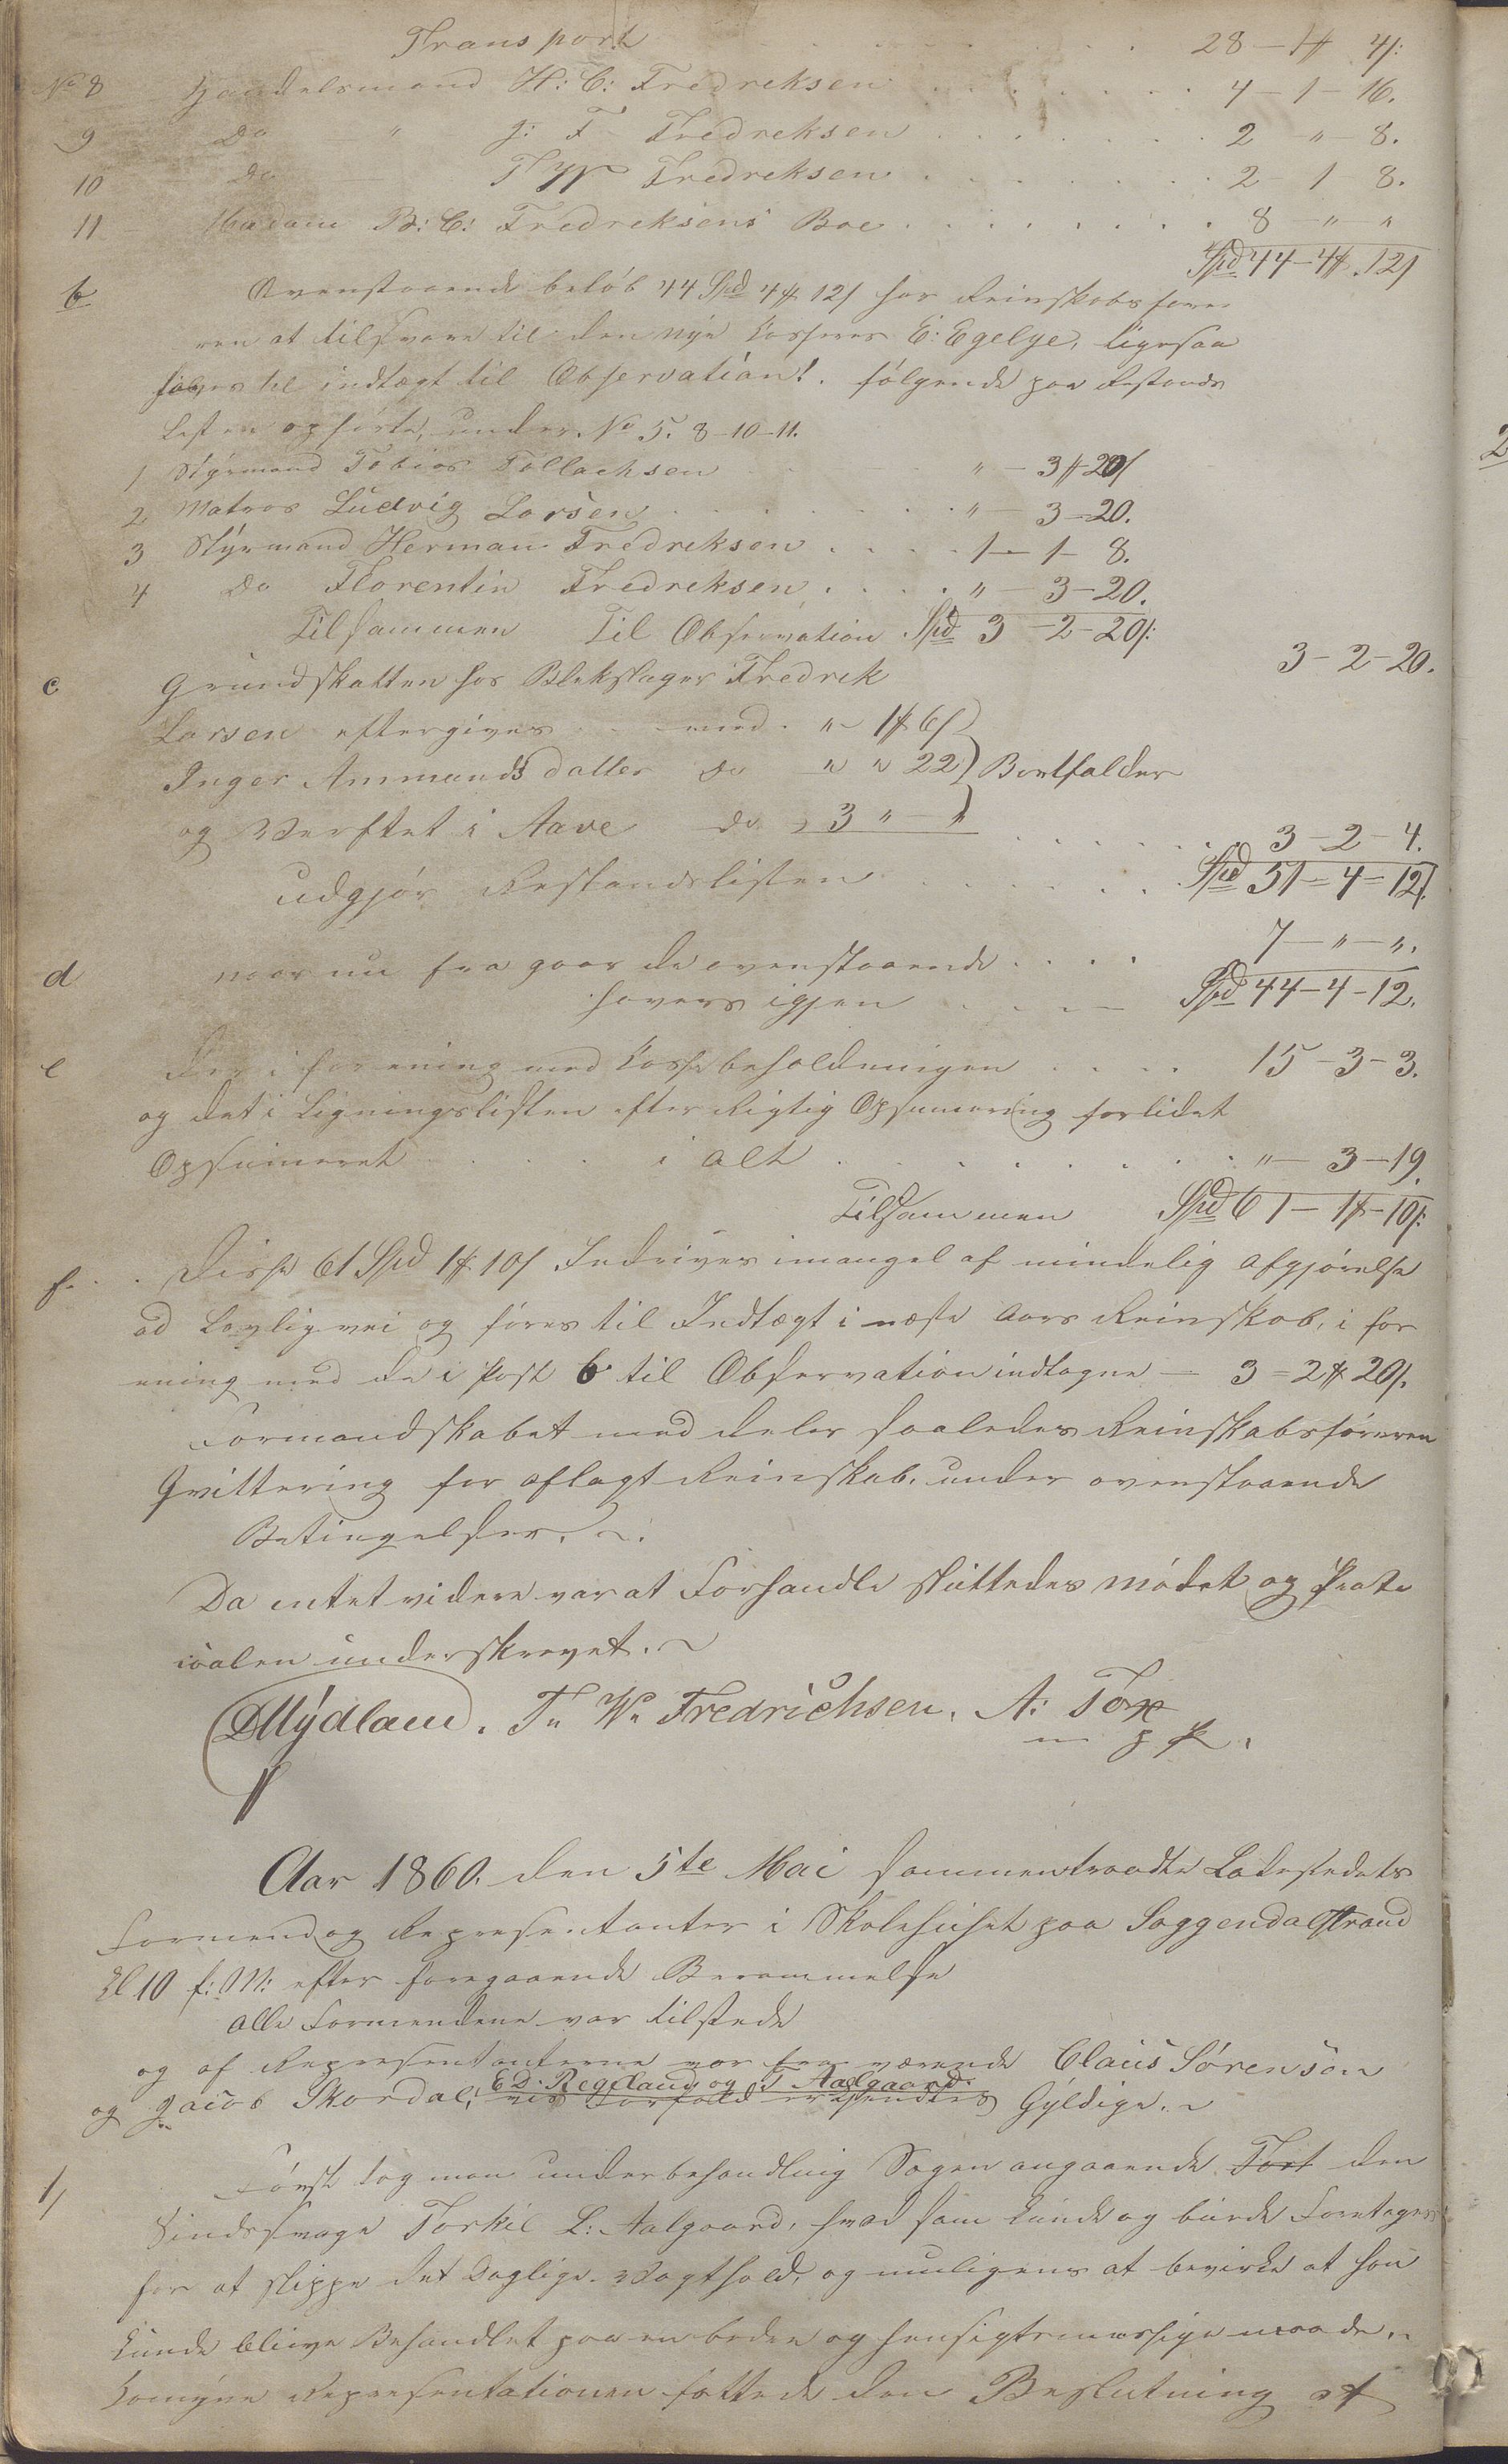 Transport . . . . . . 28 – 1 # 4/:
No 8 Handelsmand H: C: Fredreksen . . . . . . 4 – 1 – 16.
9 Do " J: F Fredreksen . . . . . . 2 " – 8.
10 Do Fredreksen . . . . . . 2 – 1 – 8.
11 Madam B: C: Fredreksens Boe . . . . . . 8 – " – "
Spd 44 – 4 # . 12/
b Ovenstaaende beløb 44 Spd 4 # 12/ har Reinskabsføre-
ren at tilsvare til den nye Kasserer E: Egelye, ligesaa
føres til indtægt til Observation!. følgende paa Restands
Listen opførte, under No 5. 8-10-11.
1 Styrmand Tobias Tollachsen " – 3 # 20/
2 Matros Ludvig Larsen . . . . . . " – 3 – 20.
3 Styrmand Herman Fredreksen . . . . 1 – 1 – 8.
4 Do Florentin Fredreksen . . . . " – 3 – 20.
Tilsammen Til Observation Spd 3 – 2 – 20/:
3 – 2 – 20.
c Grundskatten hos Blekslager Fredrek
Larsen eftergives . . med . " – 1 # 6/
Inger Ammunds datter do " " 22 } Bortfalder
og Verftet i Aave do 3 " – "
. . . . . . 3 – 2 – 4.
udgjør Restandslisten . . . . . . Spd 51 – 4 – 12/.
7 – " – ".
d naar nu fra gaar de ovenstaaende . . . .
haves igjen . . . . Spd 44 – 4 – 12.
e Der i forening med Kassebeholdningen . . . . 15 – 3 – 3.
og det i Ligningslisten efter Rigtig Opsumering forlidet
Opsumeret . . . . i alt . . . . . . " – 3 – 19.
Tilsammen Spd 61 – 1 # – 10/:
f. . . Disse 61 Spd 1 # 10/ Inddrives imangel af mindelig afgjørelse
ad Lovlig vei og føres til Indtægt i næste Aars Reinskab, i for
ening med de i Post b til Observation indtagne – 3 = 2 # 20/.
Formandskabet meddeler saaledes Reinskabsføreren
Qvittering for aflagt Reinskab, under ovenstaaende
Betingelser.
Da intet videre var at Forhandle sluttedes mødet og Proto
coalen underskrevet.
DMydland. T. W. Fredrichsen. A: Torp
m p P.
Aar 1860. den 5te Mai sammentraadte Ladestedets
Formend og Representanter i Skolehuset paa Soggendalstrand
Kl 10 f: M: efter foregaaende Berammelse
alle Formendene var tilstede
og af Representanterne var fraværende Claus Sørensen
E D. Regeland og T Aalgaard.
og Jacob Skordal, Gyldige.
1, Først tog man under behandling Sagen angaaende Tort den
Sindssvage Torkil L: Aalgaard, hvad som kunde og burde Foretages
for at slippe det daglige Vagthold, og muligens at bevirke at han
kunde blive Behandlet paa en bedre og hensigtsmæssige maade.
Komyne Representationen fattede den Beslutning at